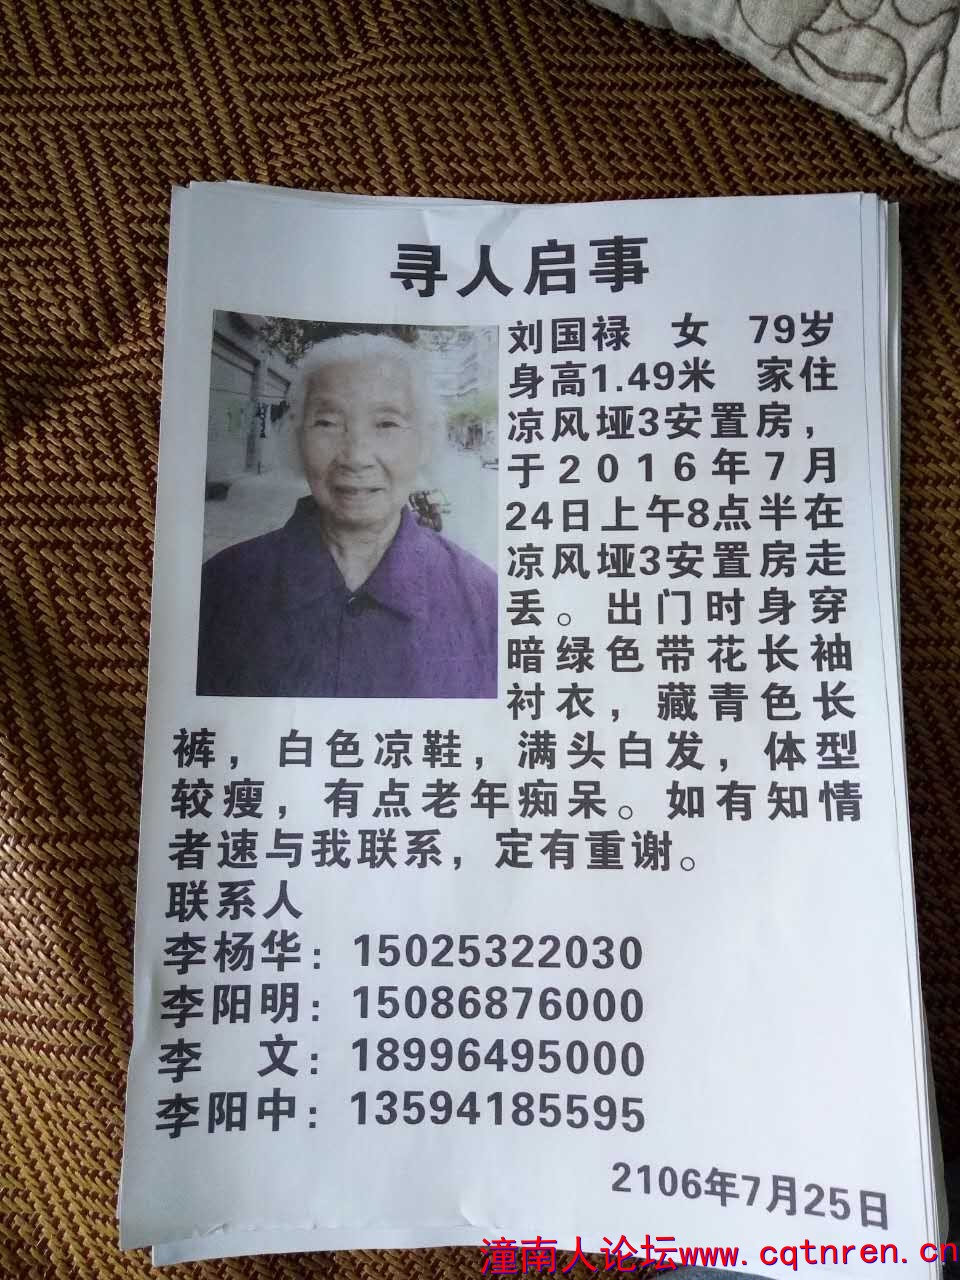 寻人启事
刘国禄 女 79岁
身高1.49米 家住
凉风垭3安置房，
于2016年7月
24日上午8点半在
凉风垭3安置房走
丢。出门时身穿
暗绿色带花长袖
衬衣，藏青色长
裤，白色凉鞋，满头白发，体型
较瘦，有点老年痴呆。如有知情
者速与我联系，定有重谢。
联系人
李杨华：15025322030
李阳明：15086876000
李 文：18996495000
李阳中：13594185595
2106年7月25日
潼南人论坛www.cqtnren.cn